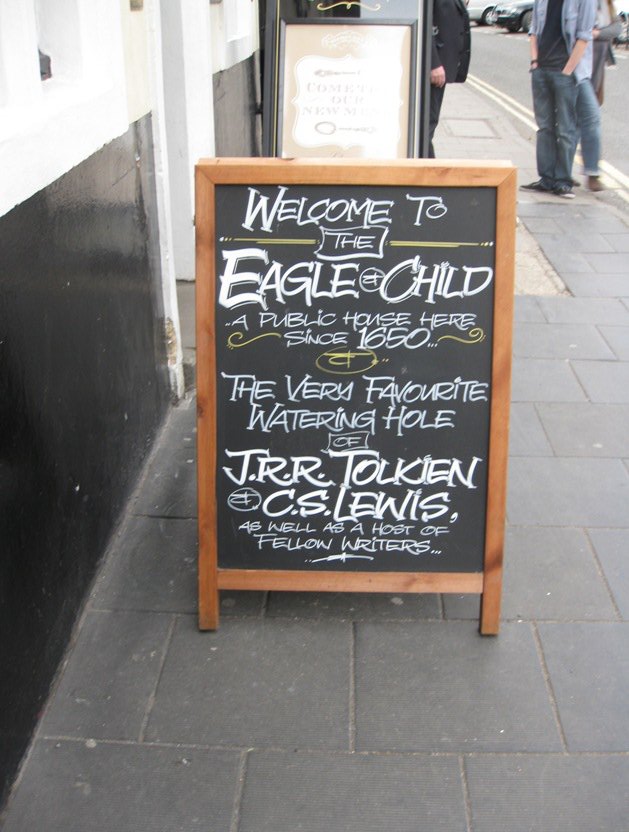 COME TO
OUR
NEW
WELCOME TO
THE
EAGLE & CHILD
..A PUBLIC HOUSE HERE
SINCE 1650...
&..
THE VERY FAVOURITE
WATERING HOLE
OF
J.R.R. TOLKIEN
& C.S. LEWIS,
AS WELL AS A HOST OF
FELLOW WRITERS...